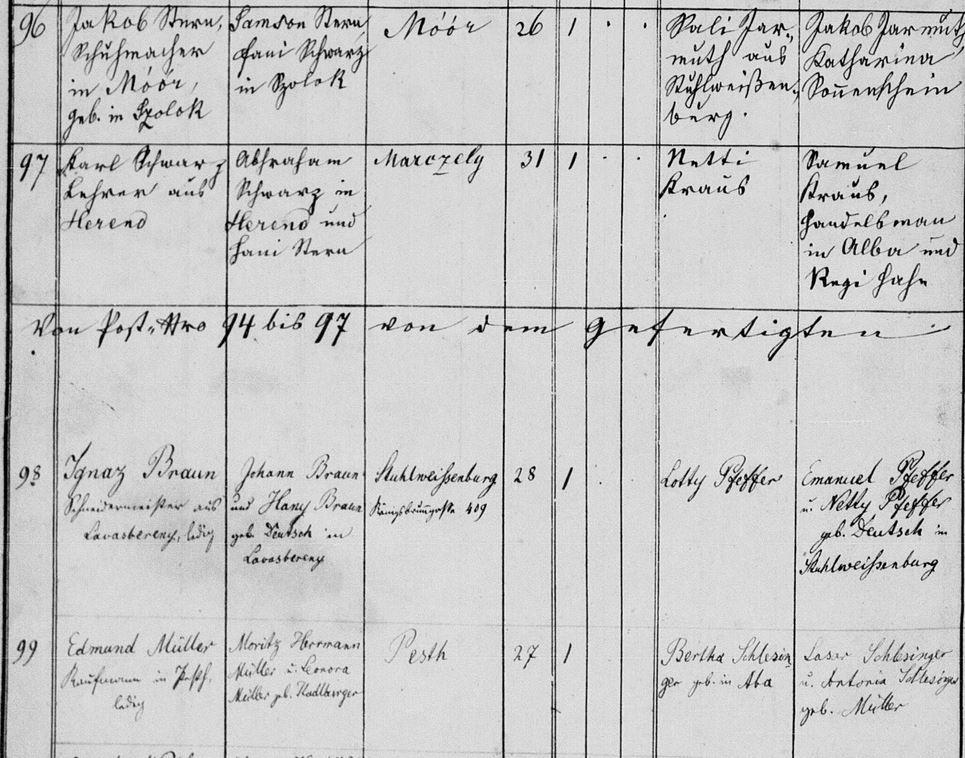 96
Jakob Stern,
Schuhmacher
in Móór,
geb. in Szolok
Samson Stern
Fani Schwarz
in Szolok
Móór
26
1
Sali Jar-
muth aus
Stuhlweißen-
berg.
Jakob Jarmuth,
Katharina
Sonnenschein
97
Karl Schwarz
Lehrer aus
Herend
Abhraham
Schwarz in
Herend und
Hani Stern
Marczely
31
1
Netti
Kraus
Samuel
Kraus,
Handelsman
in Alba und
Regi Hahn
Von Post-Nro 94 bis 97 von dem Gefertigten
98
Ignaz Braun
Schneidermeister aus
Lavasbereny, ledig
Johann Braun
und Hany Braun
geb. Deutsch in
Lavasbereny
Stuhlweissenburg
409
28
1
Lotty Pfeffer
Emanuel Pfeffer
u. Netty Pfeffer
geb. Deutsch in
Stuhlweissenburg
99
Edmund Müller
Kaufmann in Pesth,
ledig
Moritz Herrmann
Müller u. Leonora
Müller geb.
Pesth
27
1
Bertha Schlesin
ger geb. in Aba
Laser Schlesinger
u. Antonia Schlesinger
geb. Müller